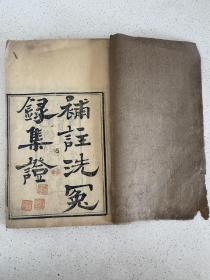 補註洗冤
錄集證